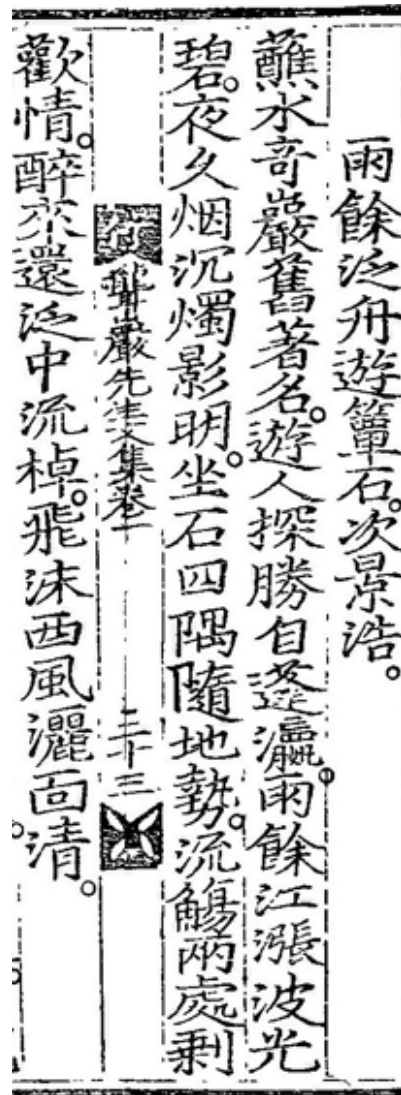 雨餘泛舟遊簟石。次景浩。
蘸水竒巖舊著名。遊人探勝自蓬瀛。雨餘江漲波光
碧。夜久烟沉燭影明。坐石四隅隨地勢。流觴兩處剩
巖先生文集卷一 二十三
歡情。醉來還泛中流棹。飛沫西風灑面清。